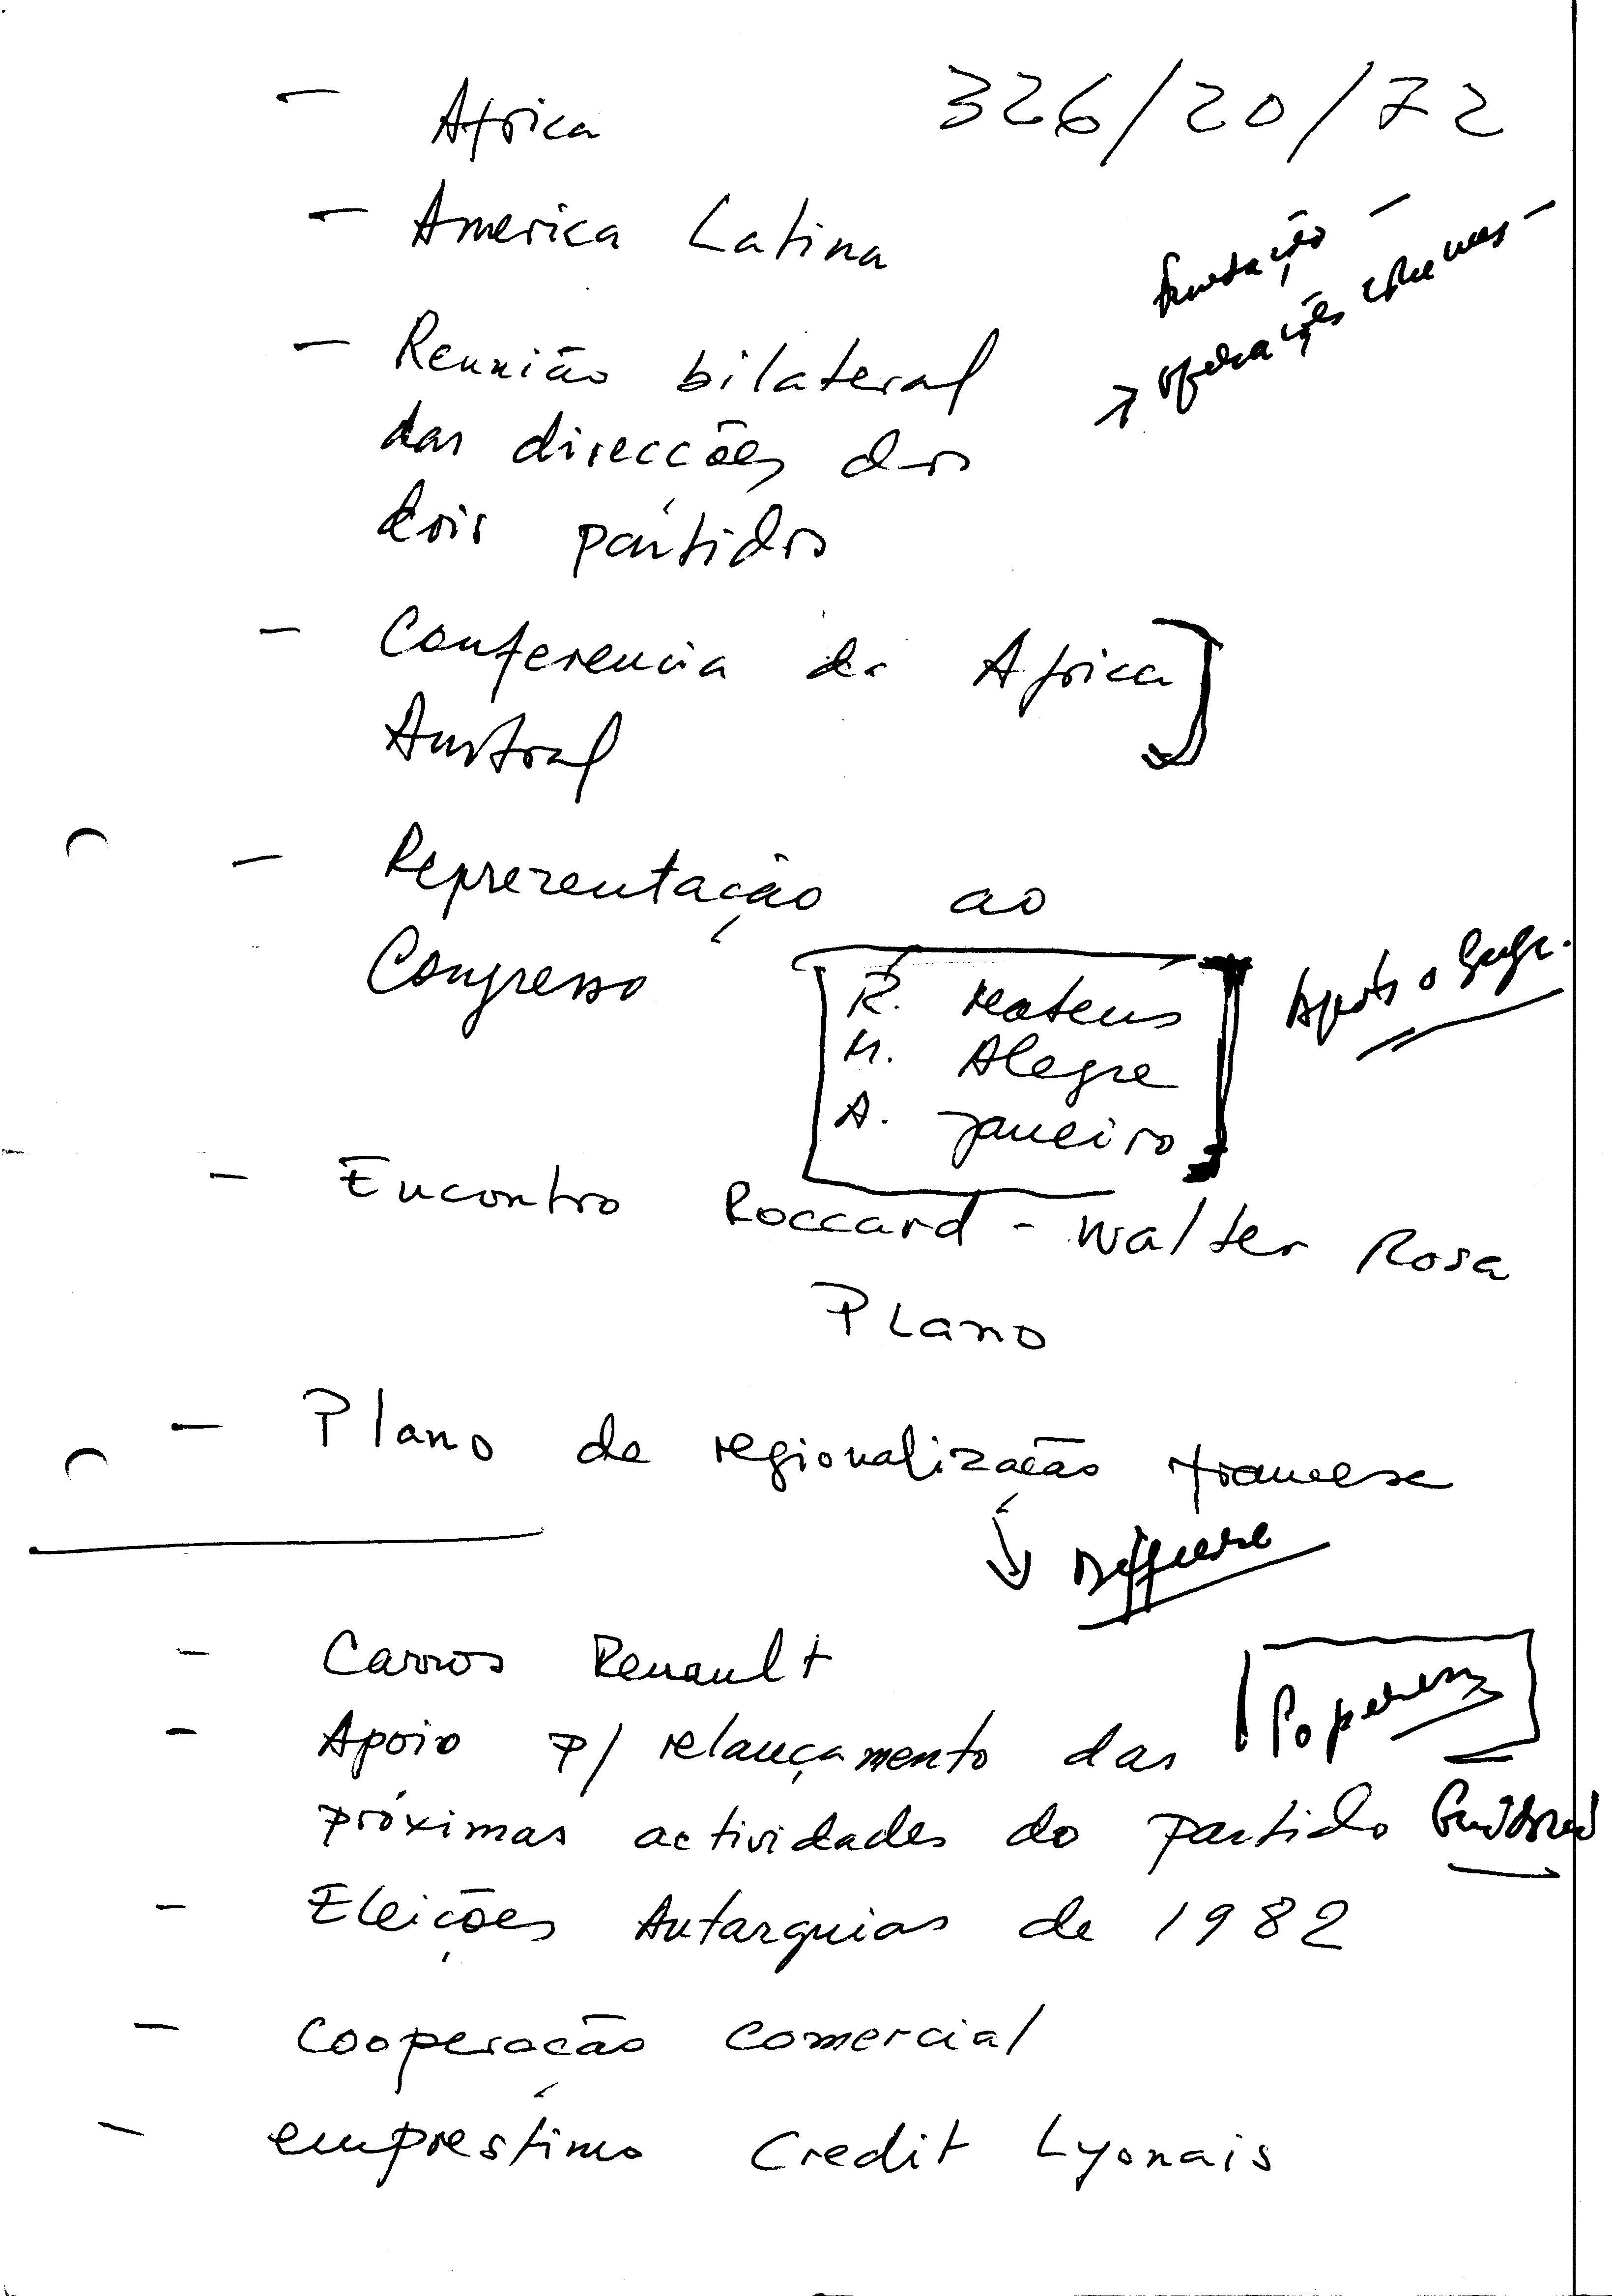 326/20/72
- Africa
- America Latina
fundação -
operações -
- Reunião bilateral
das direcções dos
dois partidos
- Conferencia da Africa
Austral
- Reprezentação ao
Congresso
R. Mateus
M. Alegre
A. Janeiro
- Encontro Roccard - Walter Rosa
Plano
- Plano de regionalização francese
↓ Defferre
- Carros Renault
- Apoio p/ relançamento das
Poperen
próximas actividades do partido
- Eleições Autarquias de 1982
- Cooperação comercial
- empréstimo Credit Lyonais